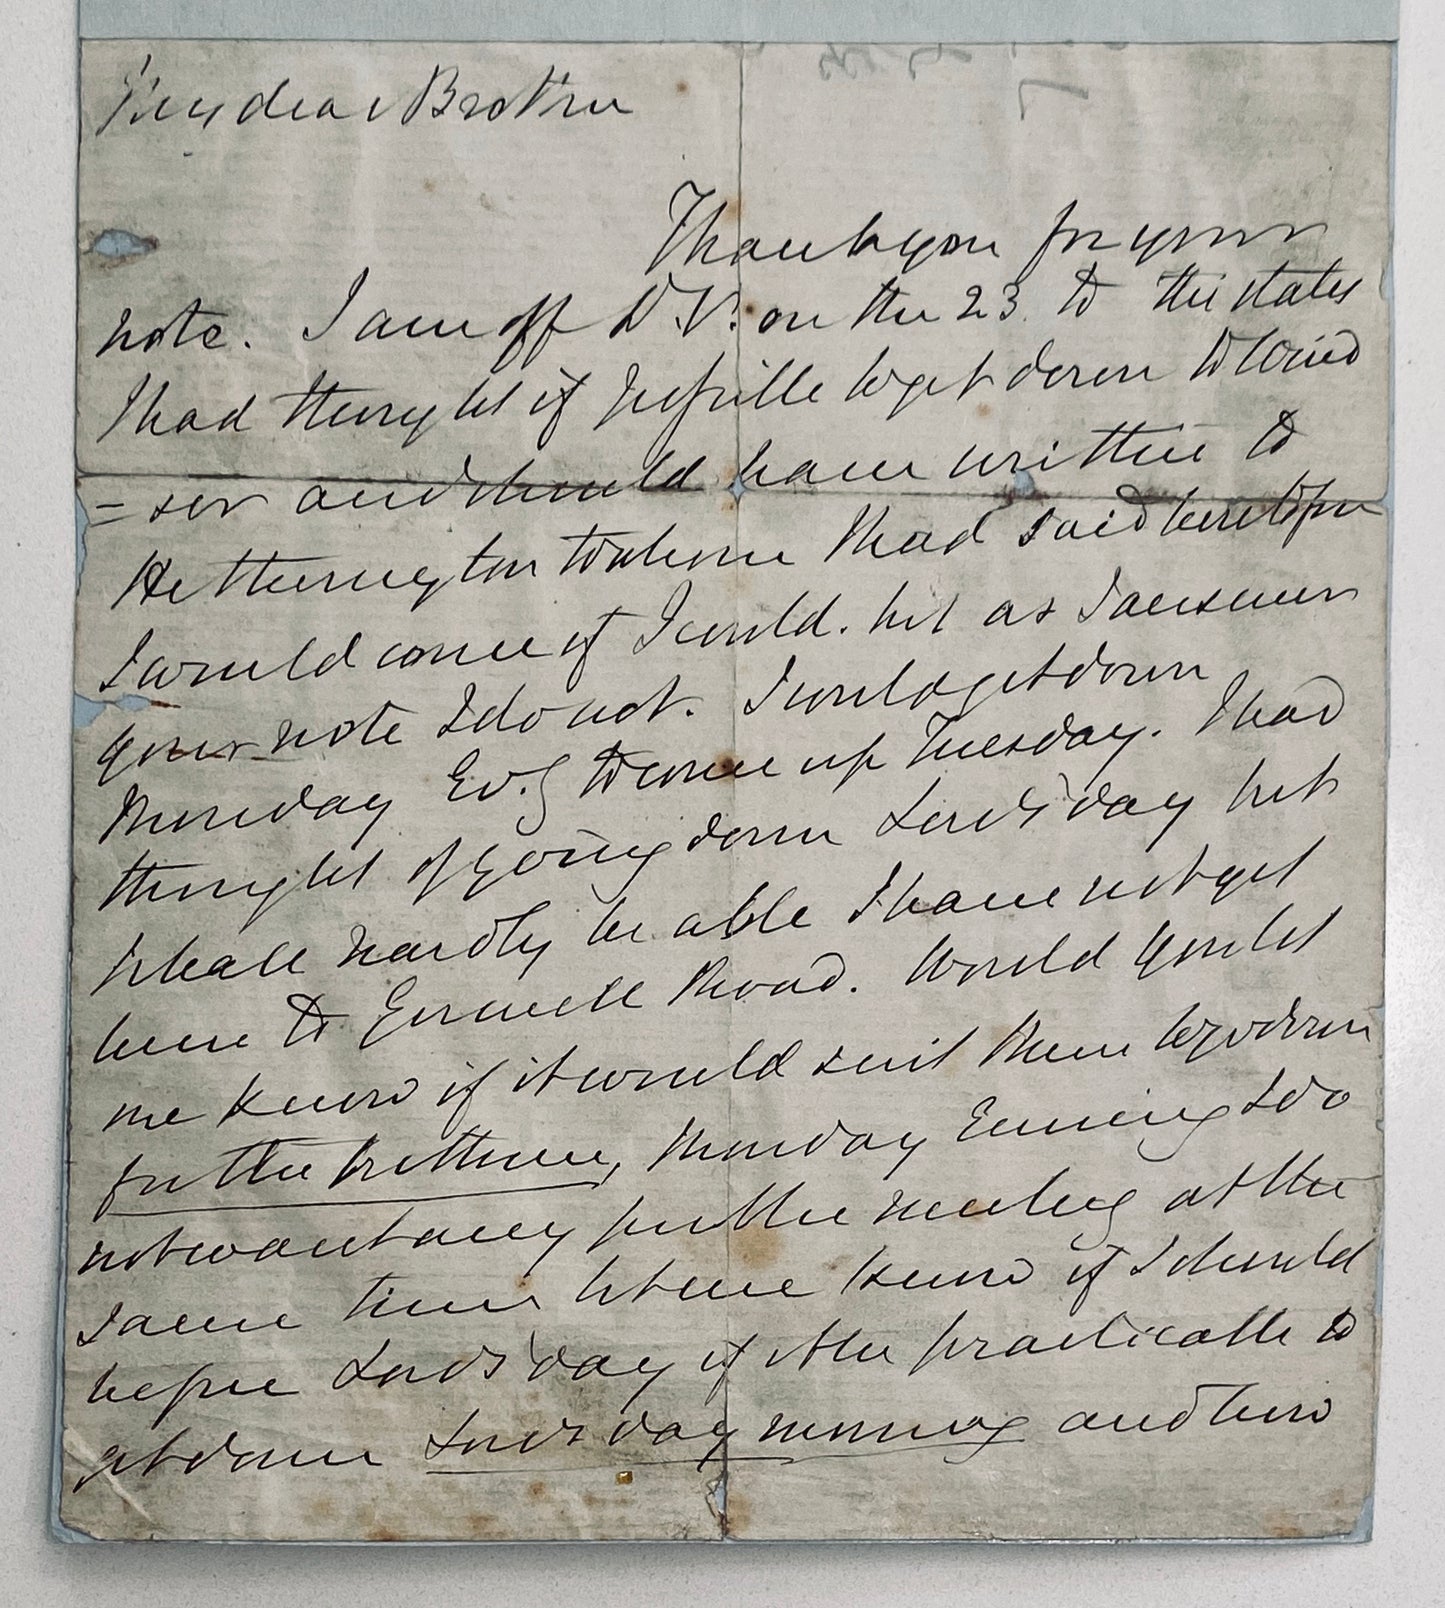 My dear Brother
Thank you for your
note. I am off D.V. on the 23 to the states
I had thought if possible to get down to Wind
= sor and should have written to
Hetherington to whom I had said heretofore
I would come if I could. but as I answer
your note I do not. I could get down
Monday Ev.g to come up Tuesday. I had
thought of going down Lord's day but
shall hardly be able I have not yet
been to Road. Would you let
me know if it would suit them to go down
for the brethren, Monday Evening I do
not want any public meeting at the
same time let me know if I should
before Lord's day if it be practicable to
get down Lord's day morning and how